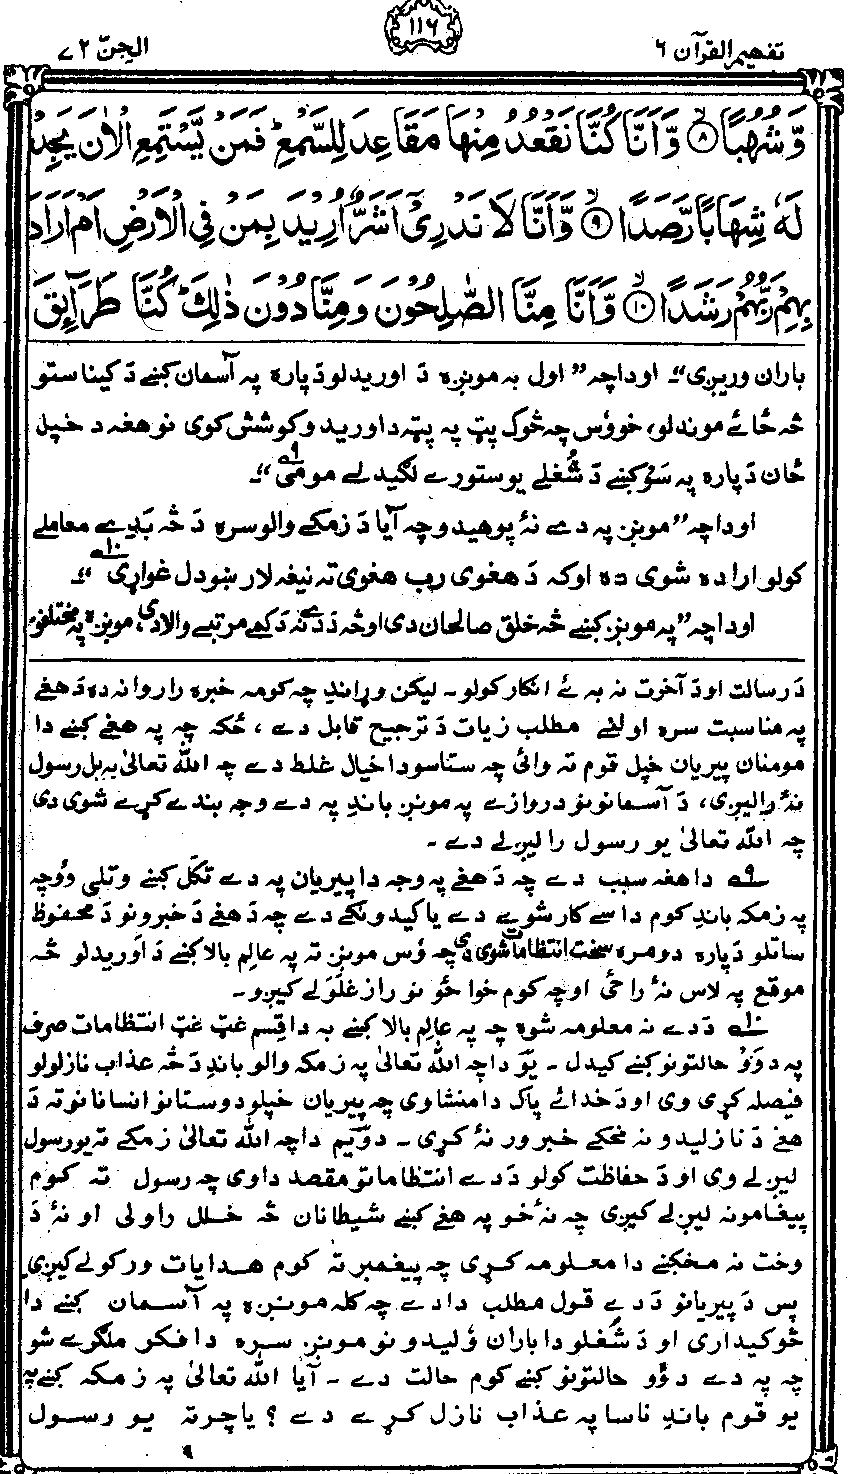 تفهیم القرآن ۶
۱۱۶
الجنّ ۷۲
وَّشُهُبًا ۝۸ وَّاَنَّا كُنَّا نَقْعُدُ مِنْهَا مَقَاعِدَ لِلسَّمْعِ ؕ فَمَنْ يَّسْتَمِعِ الْاٰنَ يَجِدْ
لَهٗ شِهَابًا رَّصَدًا ۝۹ وَّاَنَّا لَا نَدْرِيْۤ اَشَرٌّ اُرِيْدَ بِمَنْ فِي الْاَرْضِ اَمْ اَرَادَ
بِهِمْ رَبُّهُمْ رَشَدًا ۝۱۰ وَّاَنَّا مِنَّا الصّٰلِحُوْنَ وَمِنَّا دُوْنَ ذٰلِكَ ؕ كُنَّا طَرَآئِقَ
باران وریږی“۔ اوداچه ”اول به موږه د اوریدلو دپاره په آسمان کښے د کیناستو
څه ځائے موندلو، خو وُس چه څوک پټ په پټه داوریدو کوشش کوی نو هغه د خپل
ځان دپاره په سَوْکښے دَ شُغلے یو ستورے لګیدلے مومی ۹ے “۔
اوداچه ”موږن په دے نهٔ پوهیدو چه آیا دَ زمکے والو سره دَ څه بَدِے معاملے
کولو اراده شوی ده اوکه دَ هغوی رب هغوی ته نیغه لار ښودل غواړی ۱۰ے “۔
اوداچه ”په موږن کښے څه خلق صالحان دی اوڅه دَ دے نه دَ کمے مرتبے والا دی، موږنه په مختلفو
دَ رسالت اودَ آخرت نه به ئے انکار کولو۔ لیکن وړاندِ چه کومه خبره را روانه ده دَ هغے
په مناسبت سره اولنے مطلب زیات دَ ترجیح قابل دے، ځکه چه په هغے کښے دا
مومنان پیریان خپل قوم ته وائی چه ستاسو دا خیال غلط دے چه اللّٰه تعالیٰ به بل رسول
نهٔ رالیږی، دَ آسمانونو دروازے په موږن باندِ په دے وجه بندے کړے شوی دی
چه اللّٰه تعالیٰ یو رسول رالیږلے دے ۔
۹ے دا هغه سبب دے چه دَ هغے په وجه دا پیریان په دے تکَل کښے وتلی وُو چه
په زمکه باندِ کوم داسے کار شوے دے یا کیدونکے دے چه دَ هغے دَ خبرونو دَ محفوظ
ساتلو دَپاره دومره سخت انتظامات شوی دی چه وُس موږن ته په عالمِ بالا کښے دَ اوریدلو څه
موقع په لاس نهٔ راځی اوچه کوم خوا ځو نو راز غلَّولے کیږو۔
۱۰ے دَدے نه معلومه شوه چه په عالمِ بالا کښے به دا قِسم غټ غټ انتظامات صرف
په دوَوْ حالتونو کښے کیدل ۔ یوَ داچه اللّٰه تعالیٰ په زمکه والو باندِ دَ څه عذاب نازلولو
فیصله کړی وی اودَ خدائے پاک دا منشا وی چه پیریان خپلو دوستانو انسانانو ته دَ
هغے دَ نازلیدو نه مخکے خبر ور نهٔ کړی ۔ دوَیم داچه اللّٰه تعالیٰ زمکے ته یو رسول
لیږلے وی او دَ حفاظت کولو دَدے انتظاماتو مقصد دا وی چه رسول ته کوم
پیغامونه لیږلے کیږی چه نهٔ خو په هغے کښے شیطانان څه خلل راولی او نهٔ دَ
وخت نه مخکښے دا معلومه کړی چه پیغمبر ته کوم هدایات ورکولے کیږی
پس دَ پیریانو دَدے قول مطلب دا دے چه کله موږنه په آسمان کښے دا
څوکیداری او دَ شُغلو دا باران ولیدو نو موږن سره دا فکر ملګرے شو
چه په دے دوَو حالتونو کښے کوم حالت دے ۔ آیا اللّٰه تعالیٰ په زمکه کښے په
یو قوم باندِ ناسا په عذاب نازل کړے دے؟ یا چرته یو رسول
۹